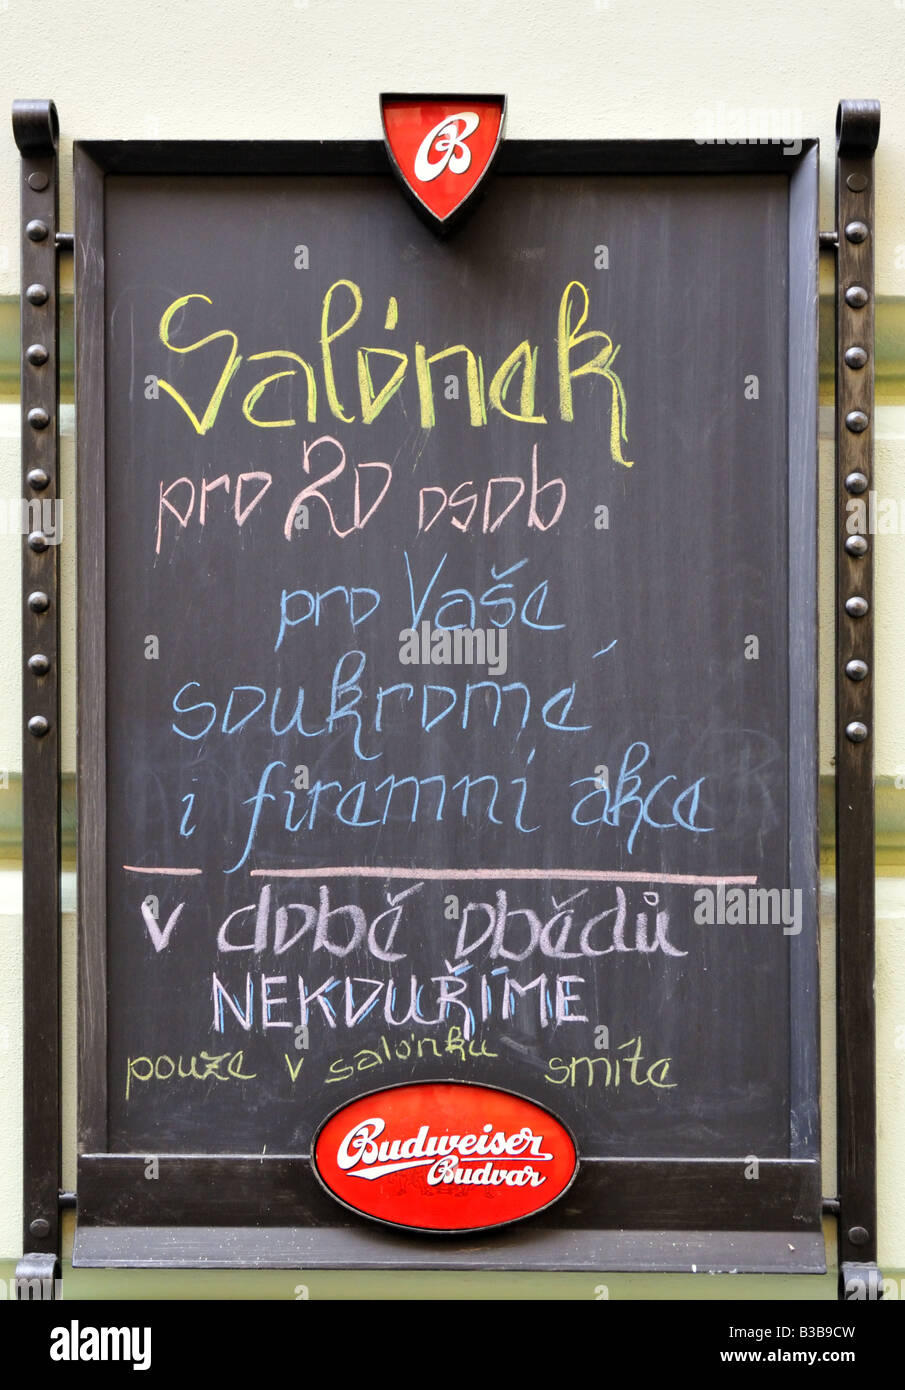 B
Salónek
pro 20 osob
pro Vaše
soukromé
i firemní akce
v době obědů
NEKOUŘÍME
pouze v salónku smíte
Budweiser
Budvar
alamy
alamy
Image ID: B3B9CW
www.alamy.com